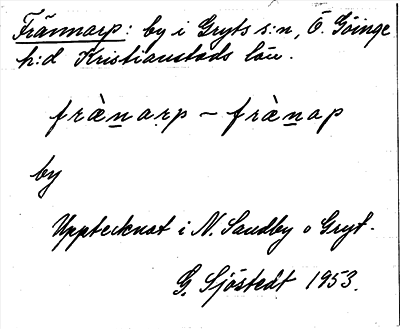 Frännarp: by i Gryts s:n, Ö. Göinge
h:d Kristianstads län.
frànarp - frànap
by
Upptecknat i N. Sandby o Gryt.
G. Sjöstedt 1953.